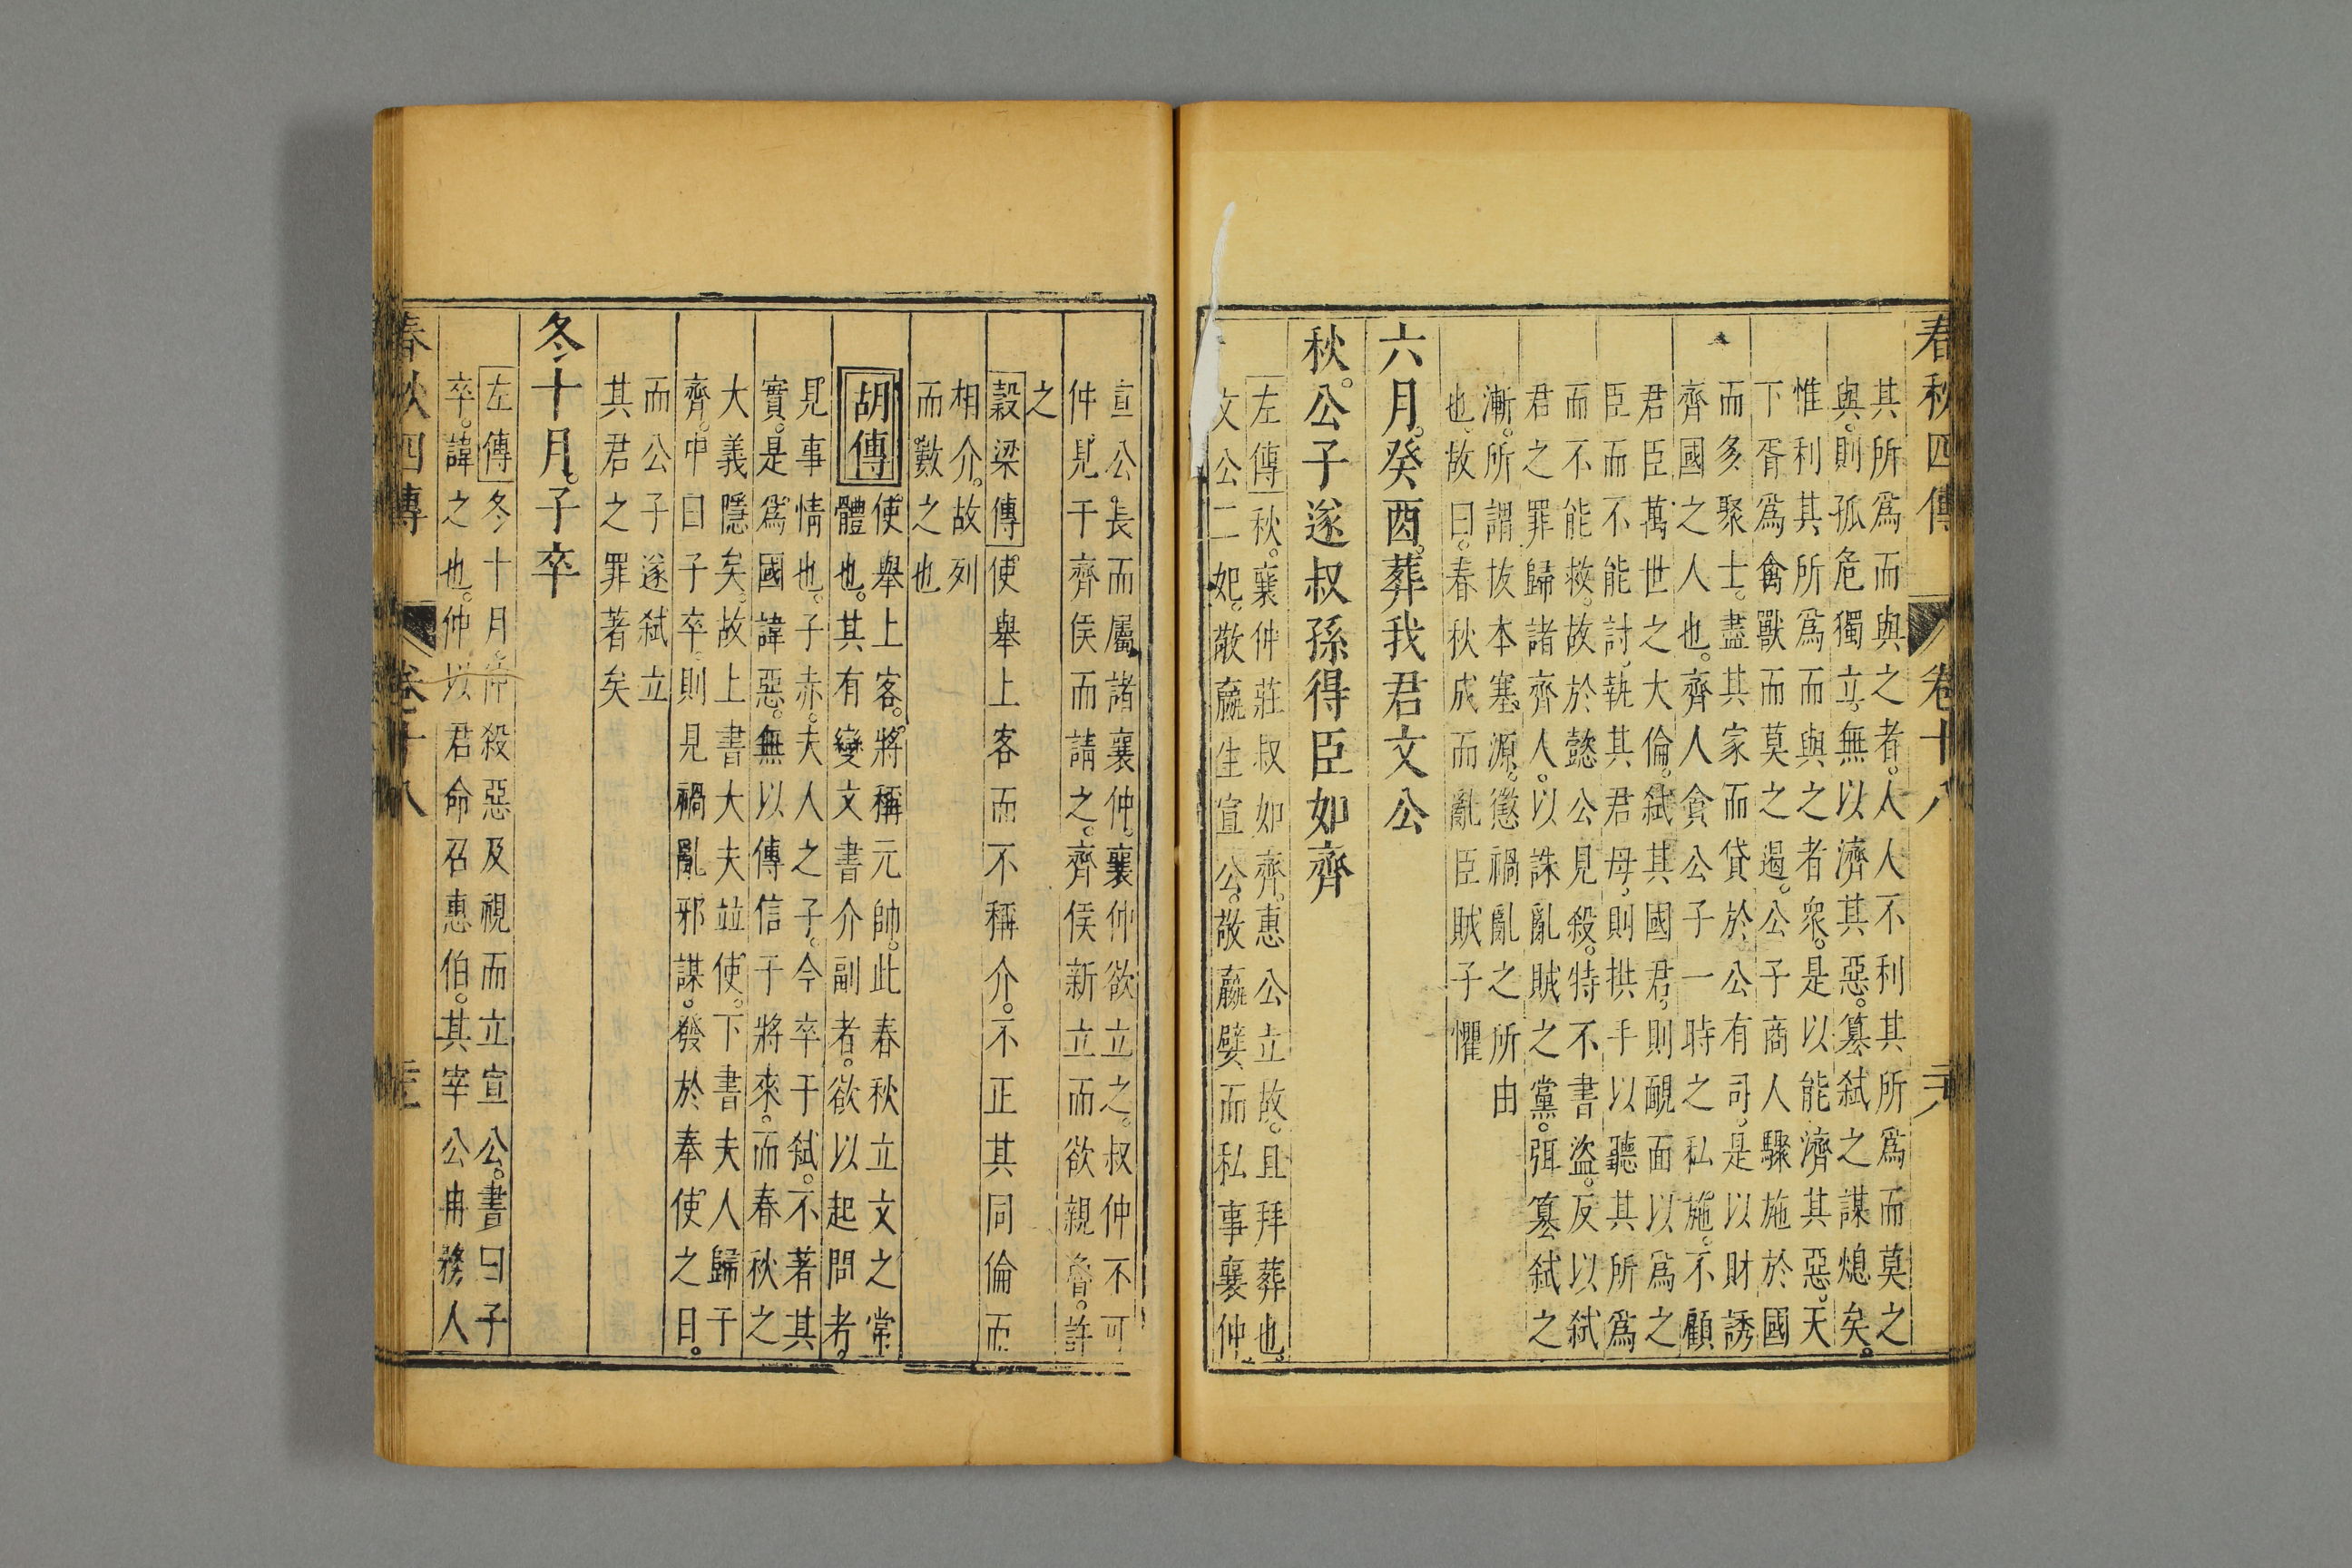 春秋四傳 卷十八
其所爲而與之者。人人不利其所爲而莫之
與。則孤危獨立。無以濟其惡。篡弑之謀熄矣。
惟利其所爲而與之者衆。是以能濟其惡。天
下胥爲禽獸而莫之遏。公子商人驟施於國
而多聚士。盡其家而貸於公有司。是以財誘
齊國之人也。齊人貪公子一時之私施。不顧
君臣萬世之大倫。弑其國君。則靦面以爲之
臣而不能討。執其君母。則拱手以聽其所爲
而不能救。故於懿公見殺。特不書盜。反以弑
君之罪歸諸齊人。以誅亂賊之黨。弭篡弑之
漸。所謂拔本塞源。懲禍亂之所由
也。故曰。春秋成而亂臣賊子懼
六月。癸酉。葬我君文公
秋。公子遂叔孫得臣如齊
左傳秋。襄仲莊叔如齊。惠公立故。且拜葬也。
文公二妃。敬嬴生宣公。敬嬴嬖而私事襄仲。
宣公長而屬諸襄仲。襄仲欲立之。叔仲不可
仲見于齊侯而請之。齊侯新立而欲親魯。許
之
穀梁傳使舉上客而不稱介。不正其同倫而
相介。故列
而數之也
胡傳使舉上客。將稱元帥。此春秋立文之常
體也。其有變文書介副者。欲以起問者。
見事情也。子赤。夫人之子。今卒于弑。不著其
實。是爲國諱惡。無以傳信于將來。而春秋之
大義隱矣。故上書大夫竝使。下書夫人歸于
齊。中曰子卒。則見禍亂邪謀。發於奉使之日。
而公子遂弑立
其君之罪著矣
冬十月。子卒
左傳冬十月。仲殺惡及視而立宣公。書曰子
卒。諱之也。仲以君命召惠伯。其宰公冉務人
春秋四傳 卷十八